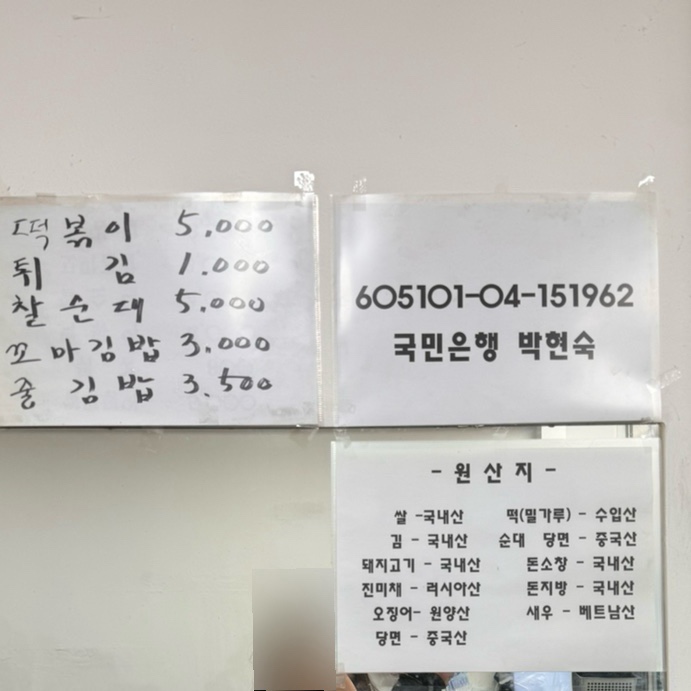 떡볶이 5,000
튀김 1.000
찰순대 5.000
꼬마김밥 3.000
줄김밥 3.500
605101-04-151962
국민은행 박현숙
- 원산지 -
쌀 -국내산 떡(밀가루) - 수입산
김 - 국내산 순대 당면 - 중국산
돼지고기 - 국내산 돈소창 - 국내산
진미채 - 러시아산 돈지방 - 국내산
오징어- 원양산 새우 - 베트남산
당면 - 중국산